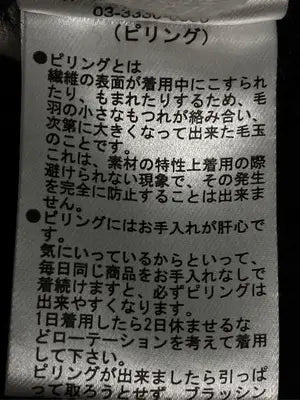 (ピリング)
●ピリングとは
繊維の表面が着用中にこすられ
たり、もまれたりするため、毛
羽の小さなもつれが絡み合い、
次第に大きくなって出来た毛玉
のことです。
これは、素材の特性上着用の際
避けられない現象で、その発生
を完全に防止することは出来ま
せん。
●ピリングにはお手入れが肝心で
す。
気にいっているからといって、
毎日同じ商品をお手入れなしで
着続けますと、必ずピリングは
出来やすくなります。
1日着用したら2日休ませるな
どローテーションを考えて着用
して下さい。
ピリングが出来ましたら引っぱ
って取ろうとせず、ブラッシン